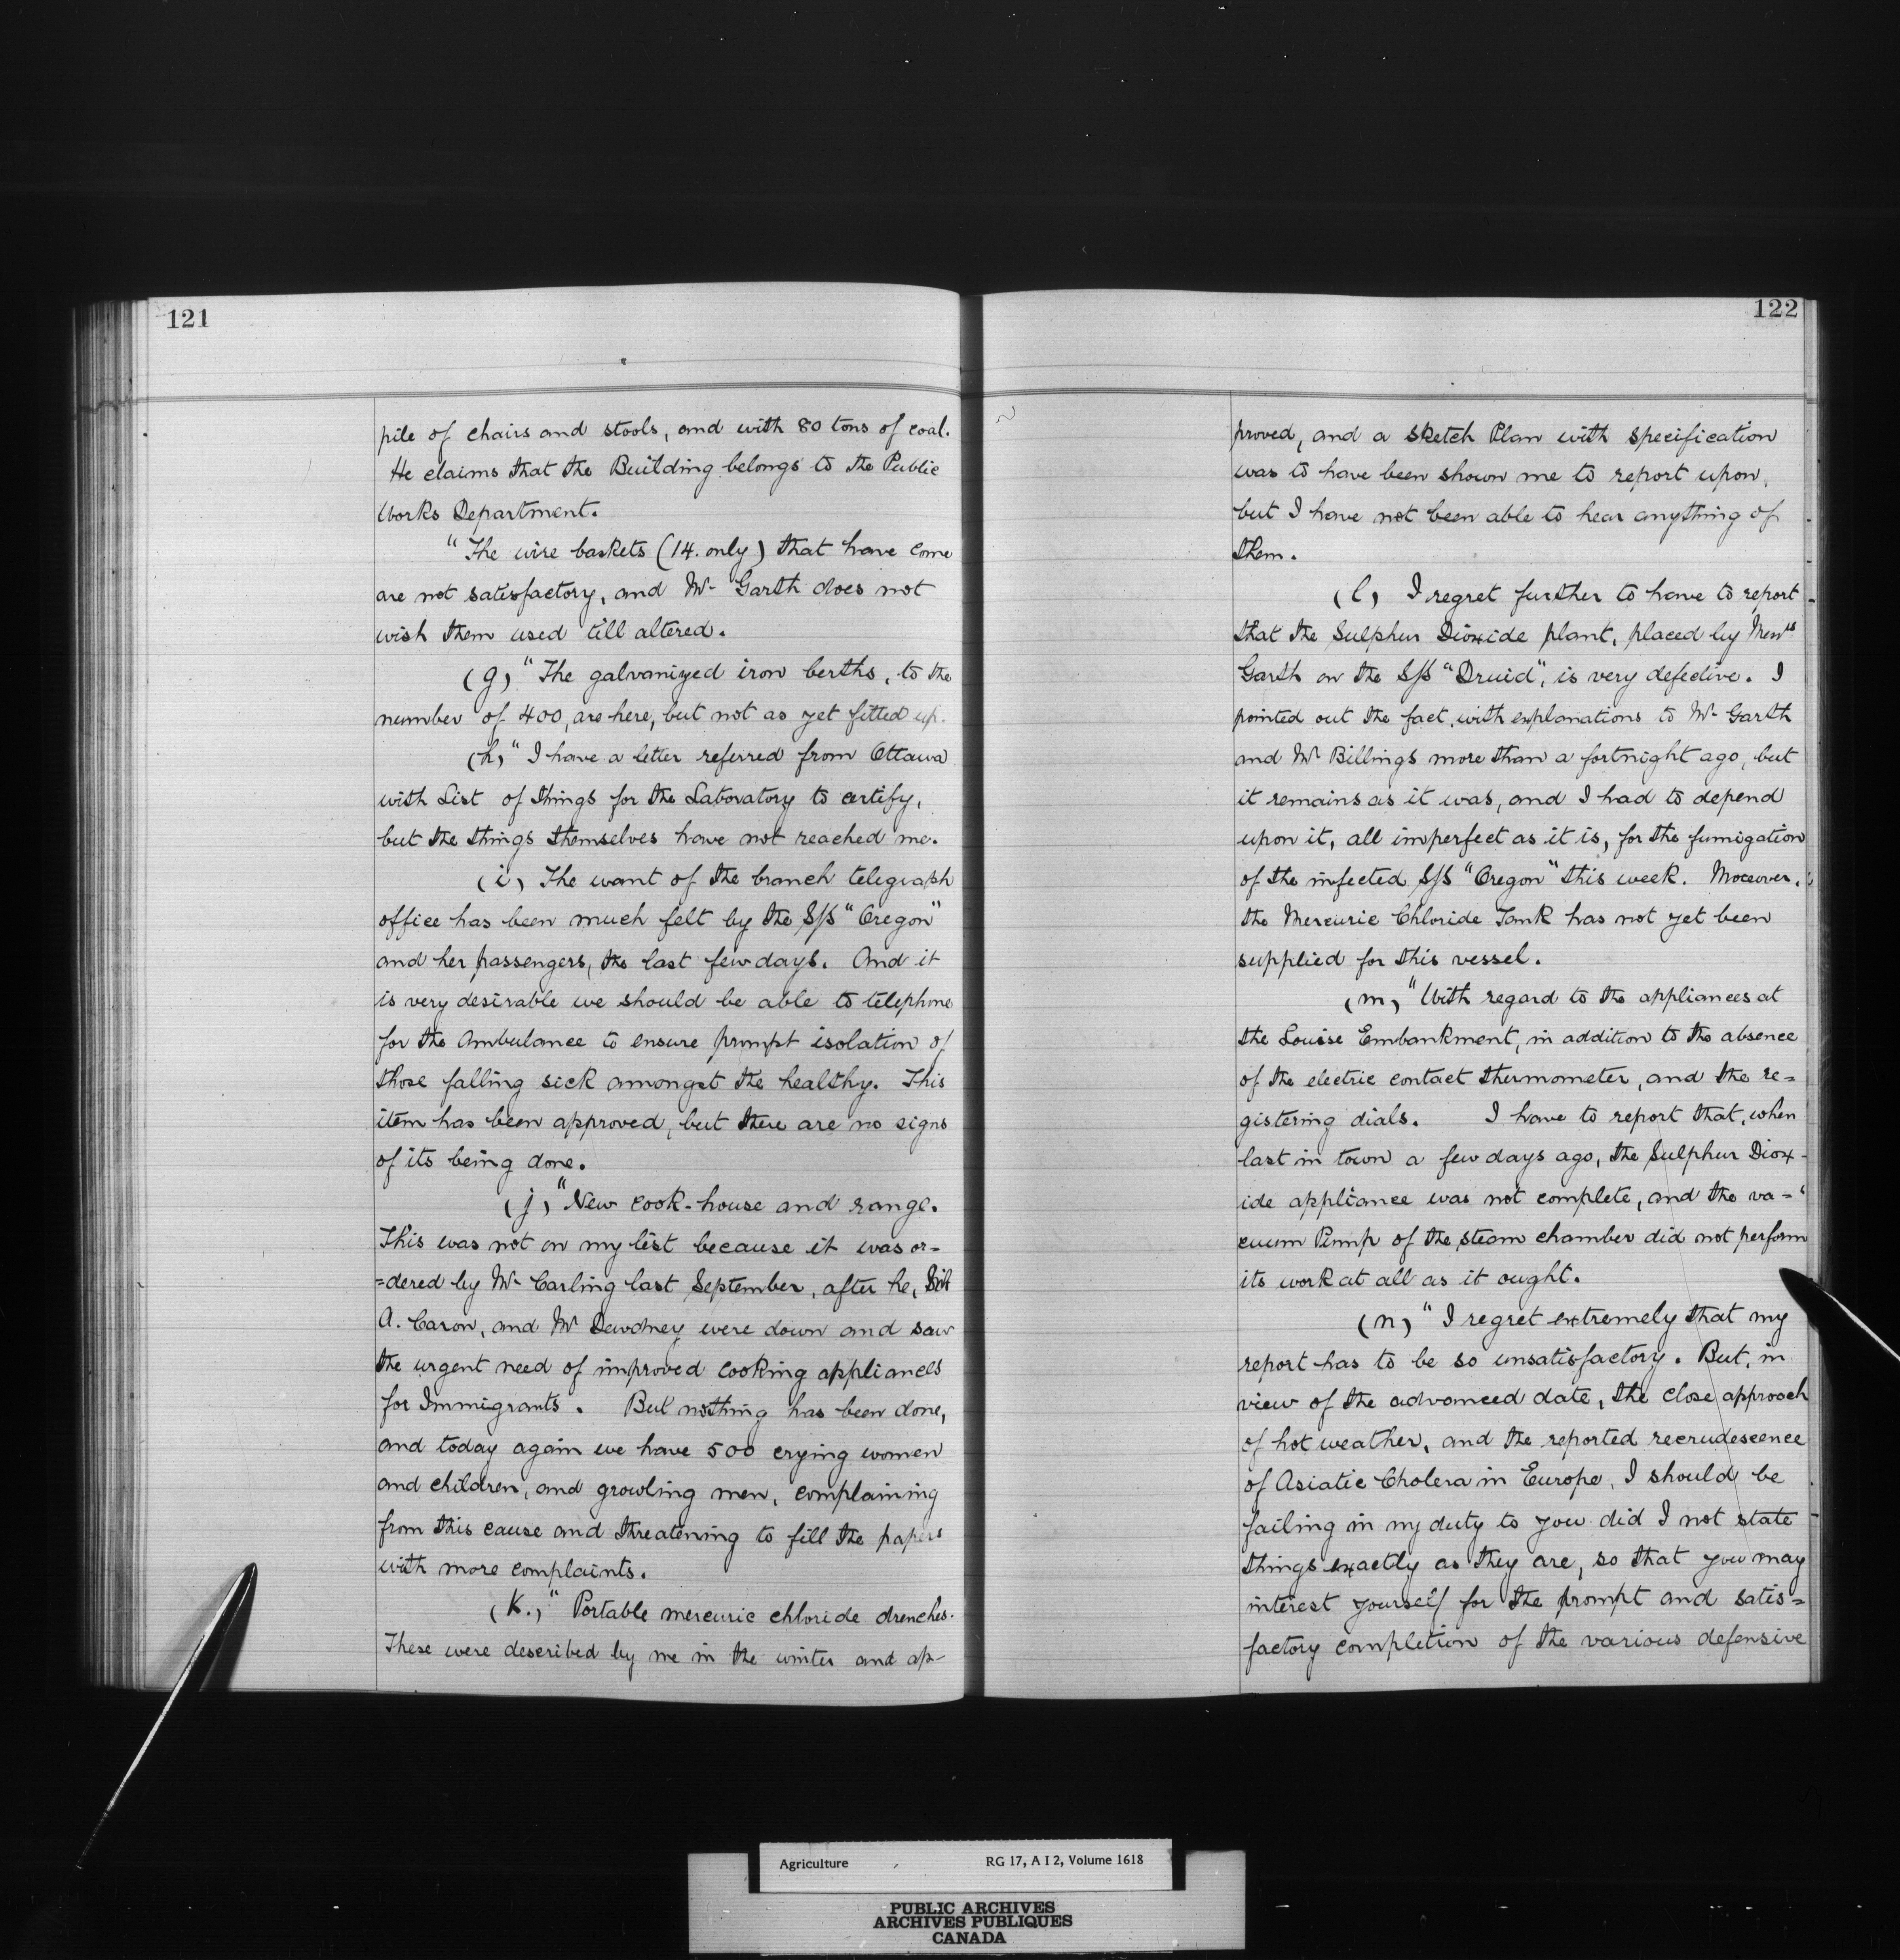 121
pile of chairs and stools, and with 80 tons of coal.
He claims that the Building belongs to the Public
Works Department.
"The wire baskets (14. only) that have come
are not satisfactory, and Mr Garth does not
wish them used till altered.
(g) "The galvanized iron berths, to the
number of 400, are here, but not as yet fitted up.
(h) "I have a letter referred from Ottawa
with List of things for the Laboratory to certify,
but the things themselves have not reached me.
(i) The want of the branch telegraph
office has been much felt by the S/S "Oregon"
and her passengers, the last few days. And it
is very desirable we should be able to telephone
for the Ambulance to ensure prompt isolation of
those falling sick amongst the healthy. This
item has been approved, but there are no signs
of its being done.
(j) "New cook-house and range.
This was not on my list because it was or=
=dered by Mr Carling last September, after he, Sir
A. Caron, and Mr Dewdney were down and saw
the urgent need of improved cooking appliances
for Immigrants. But nothing has been done,
and today again we have 500 crying women
and children, and growling men, complaining
from this cause and threatening to fill the papers
with more complaints.
(K.) "Portable mercuric chloride drenches.
These were described by me in the winter and ap-
122
proved, and a sketch Plan with specification
was to have been shown me to report upon,
but I have not been able to hear anything of
them.
(l) I regret further to have to report
that the Sulphur Dioxide plant, placed by Messrs
Garth on the S/S "Druid", is very defective. I
pointed out the fact, with explanations to Mr Garth
and Mr Billings more than a fortnight ago, but
it remains as it was, and I had to depend
upon it, all imperfect as it is, for the fumigation
of the infected S/S "Oregon" this week. Moreover,
the Mercuric Chloride Tank has not yet been
supplied for this vessel.
(m) "With regard to the appliances at
the Louise Embankment, in addition to the absence
of the electric contact thermometer, and the re=
gistering dials. I have to report that, when
last in town a few days ago, the Sulphur Diox-
ide appliance was not complete, and the va=
cuum Pump of the steam chamber did not perform
its work at all as it ought.
(n) "I regret extremely that my
report has to be so unsatisfactory. But, in
view of the advanced date, the close approach
of hot weather, and the reported recrudescence
of Asiatic Cholera in Europe, I should be
failing in my duty to you did I not state
things exactly as they are, so that you may
interest yourself for the prompt and satis=
factory completion of the various defensive
Agriculture RG 17, A I 2, Volume 1618
PUBLIC ARCHIVES
ARCHIVES PUBLIQUES
CANADA